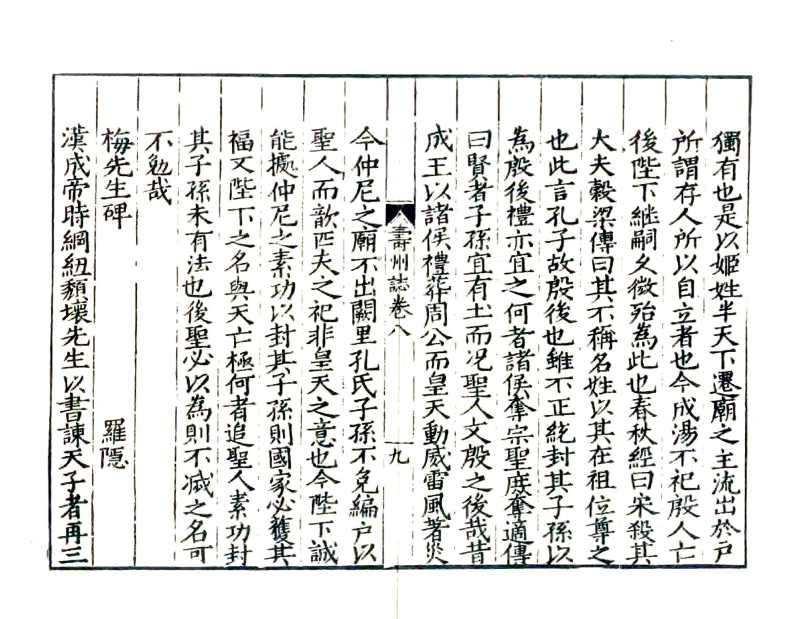 獨有也是以姬姓半天下遷廟之主流出於户
所謂存人所以自立者也今成湯不祀殷人亡
後陛下繼嗣久微殆為此也春秋經曰宋殺其
大夫穀梁傳曰其不稱名姓以其在祖位尊之
也此言孔子故殷後也雖不正統封其子孫以
為殷後禮亦宜之何者諸侯奪宗聖庻奪適傳
曰賢者子孫宜有土而况聖人又殷之後哉昔
成王以諸侯禮葬周公而皇天動威雷風著災
壽州誌卷八
九
今仲尼之廟不出闕里孔氏子孫不免編户以
聖人而歆匹夫之祀非皇天之意也今陛下誠
能據仲尼之素功以封其子孫則國家必獲其
福又陛下之名與天亡極何者追聖人素功封
其子孫未有法也後聖必以為則不滅之名可
不勉哉
梅先生碑 羅隱
漢成帝時綱紐頽壞先生以書諫天子者再三